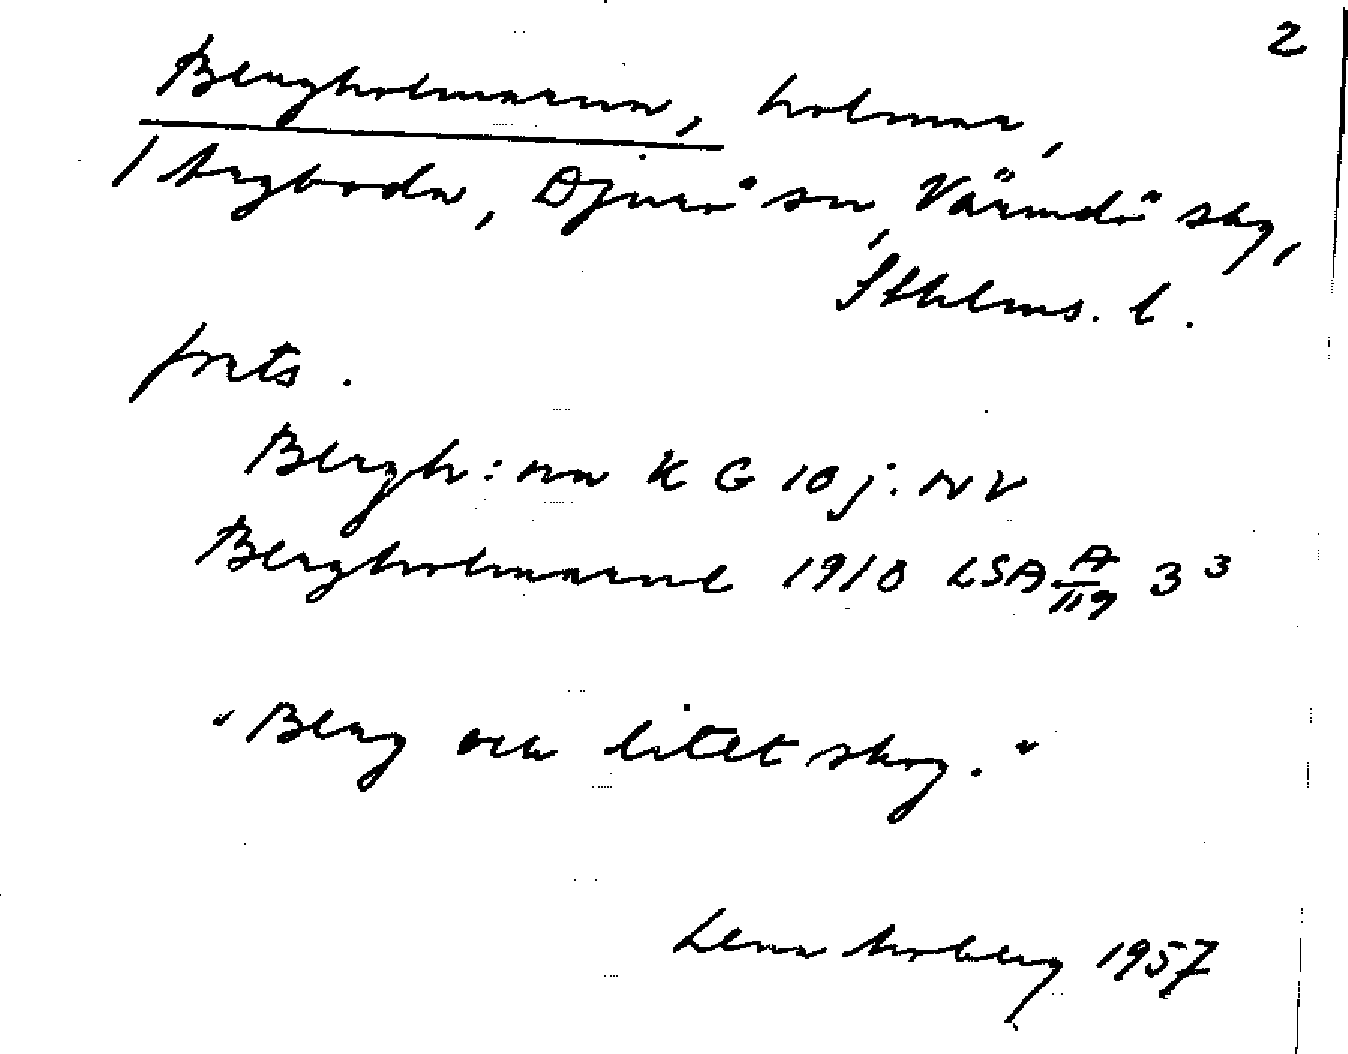 2
Bergholmarna, holmar,
Djurö sn, Värmdö skg,
Sthlms. l.
forts.
Bergh:na K G 10 j. NV
Bergholmarne 1910 LSA A/119 3 3
"Berg och litet skog."
Lena Moberg 1957